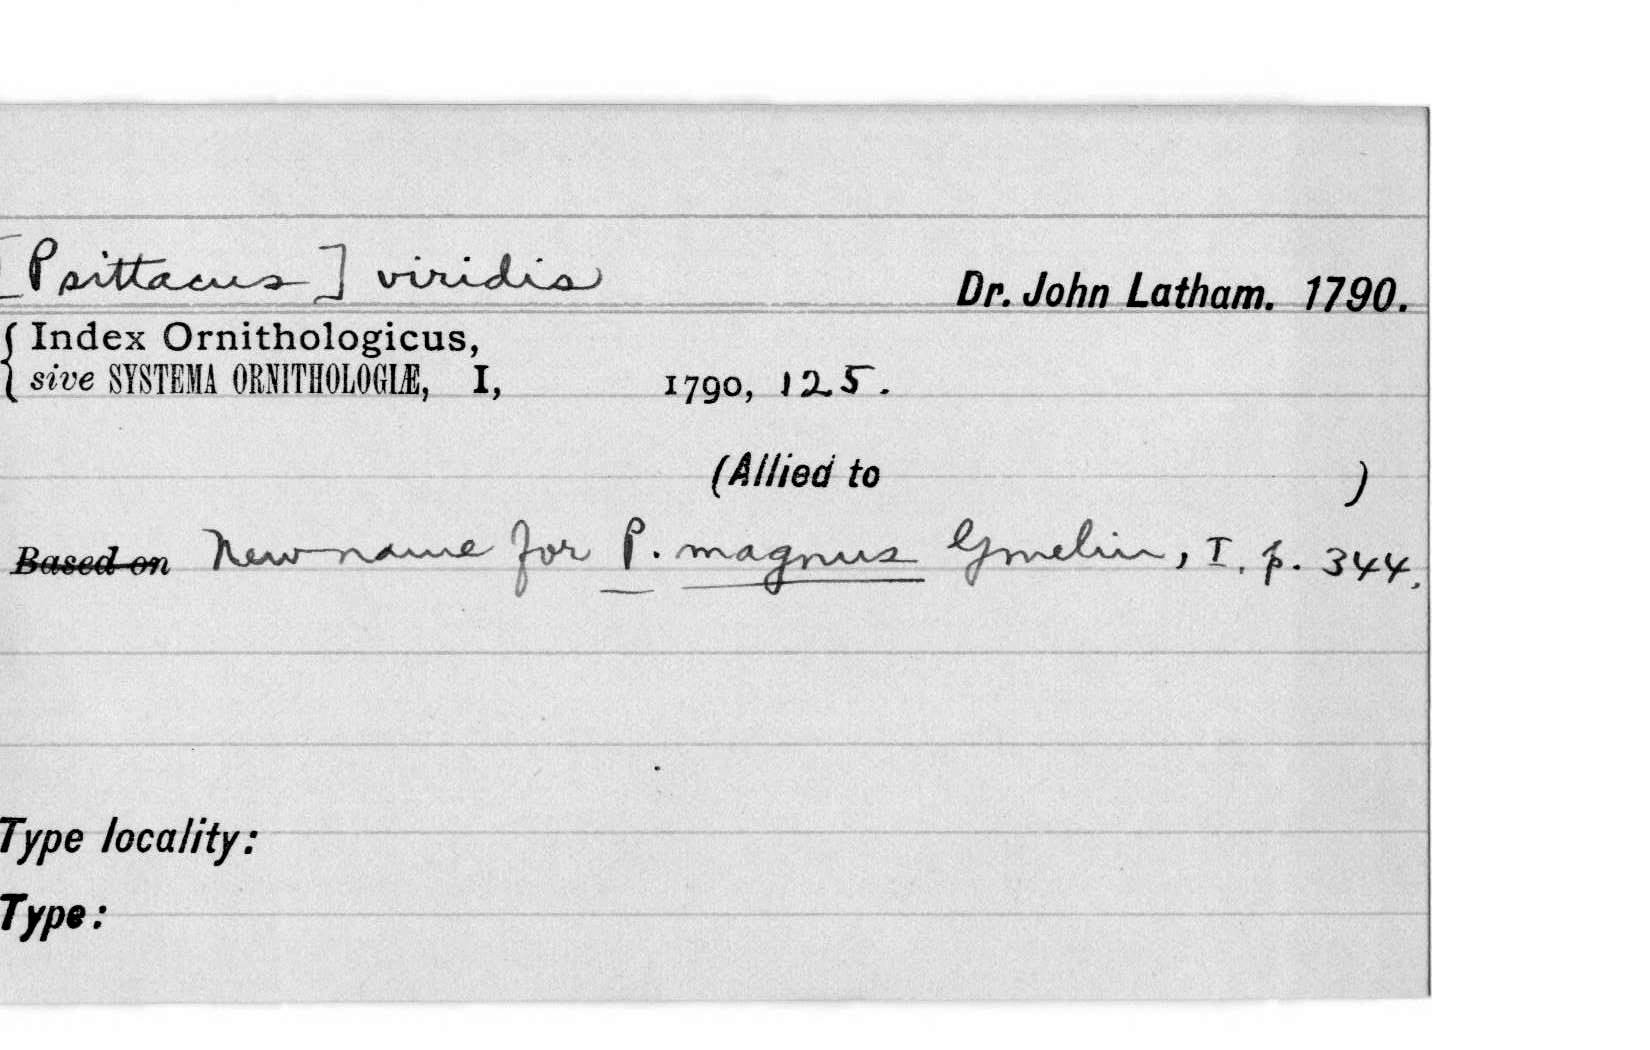 [Psittacus] viridis
Dr. John Latham. 1790.
Index Ornithologicus,
sive SYSTEMA ORNITHOLOGIÆ, I, 1790, 125.
(Allied to )
Based on New name for P. magnus Gmelin, I. p. 344.
Type locality:
Type: